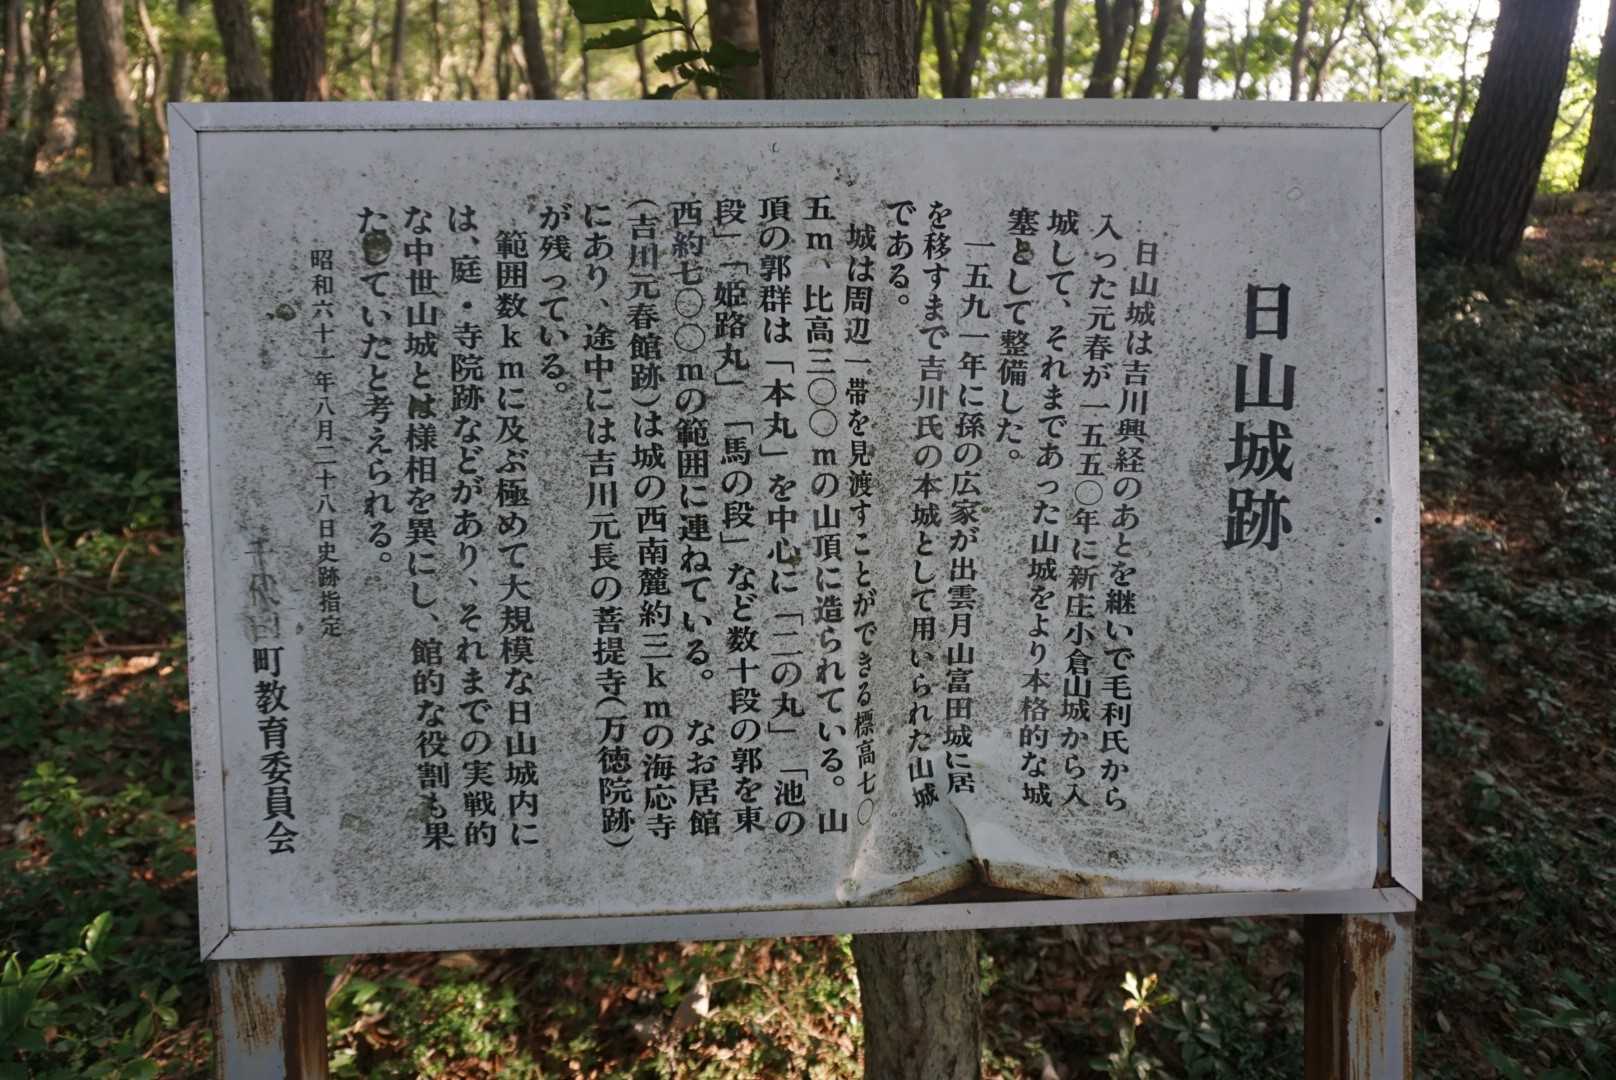 日山城跡
日山城は吉川興経のあとを継いで毛利氏から
入った元春が一五五〇年に新庄小倉山城から入
城して、それまであった山城をより本格的な城
塞として整備した。
一五九一年に孫の広家が出雲月山富田城に居
を移すまで吉川氏の本城として用いられた山城
である。
城は周辺一帯を見渡すことができる標高七〇
五m、比高三〇〇mの山頂に造られている。山
頂の郭群は「本丸」を中心に「二の丸」「池の
段」「姫路丸」「馬の段」など数十段の郭を東
西約七〇〇mの範囲に連ねている。なお居館
(吉川元春館跡)は城の西南麓約三kmの海応寺
にあり、途中には吉川元長の菩提寺(万徳院跡)
が残っている。
範囲数kmに及ぶ極めて大規模な日山城内に
は、庭・寺院跡などがあり、それまでの実戦的
な中世山城とは様相を異にし、館的な役割も果
たしていたと考えられる。
昭和六十一年八月二十八日史跡指定
千代田町教育委員会